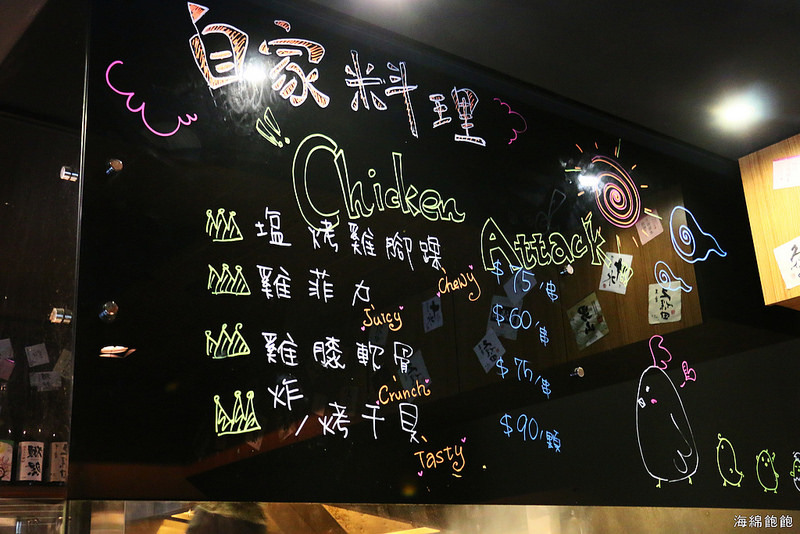 自家料理
Chicken
Attack
塩烤雞腳踝 Chewy $75/串
雞菲力 Juicy $60/串
雞膝軟骨 Crunch $75/串
炸/烤干貝 Tasty $90/顆
海綿飽飽